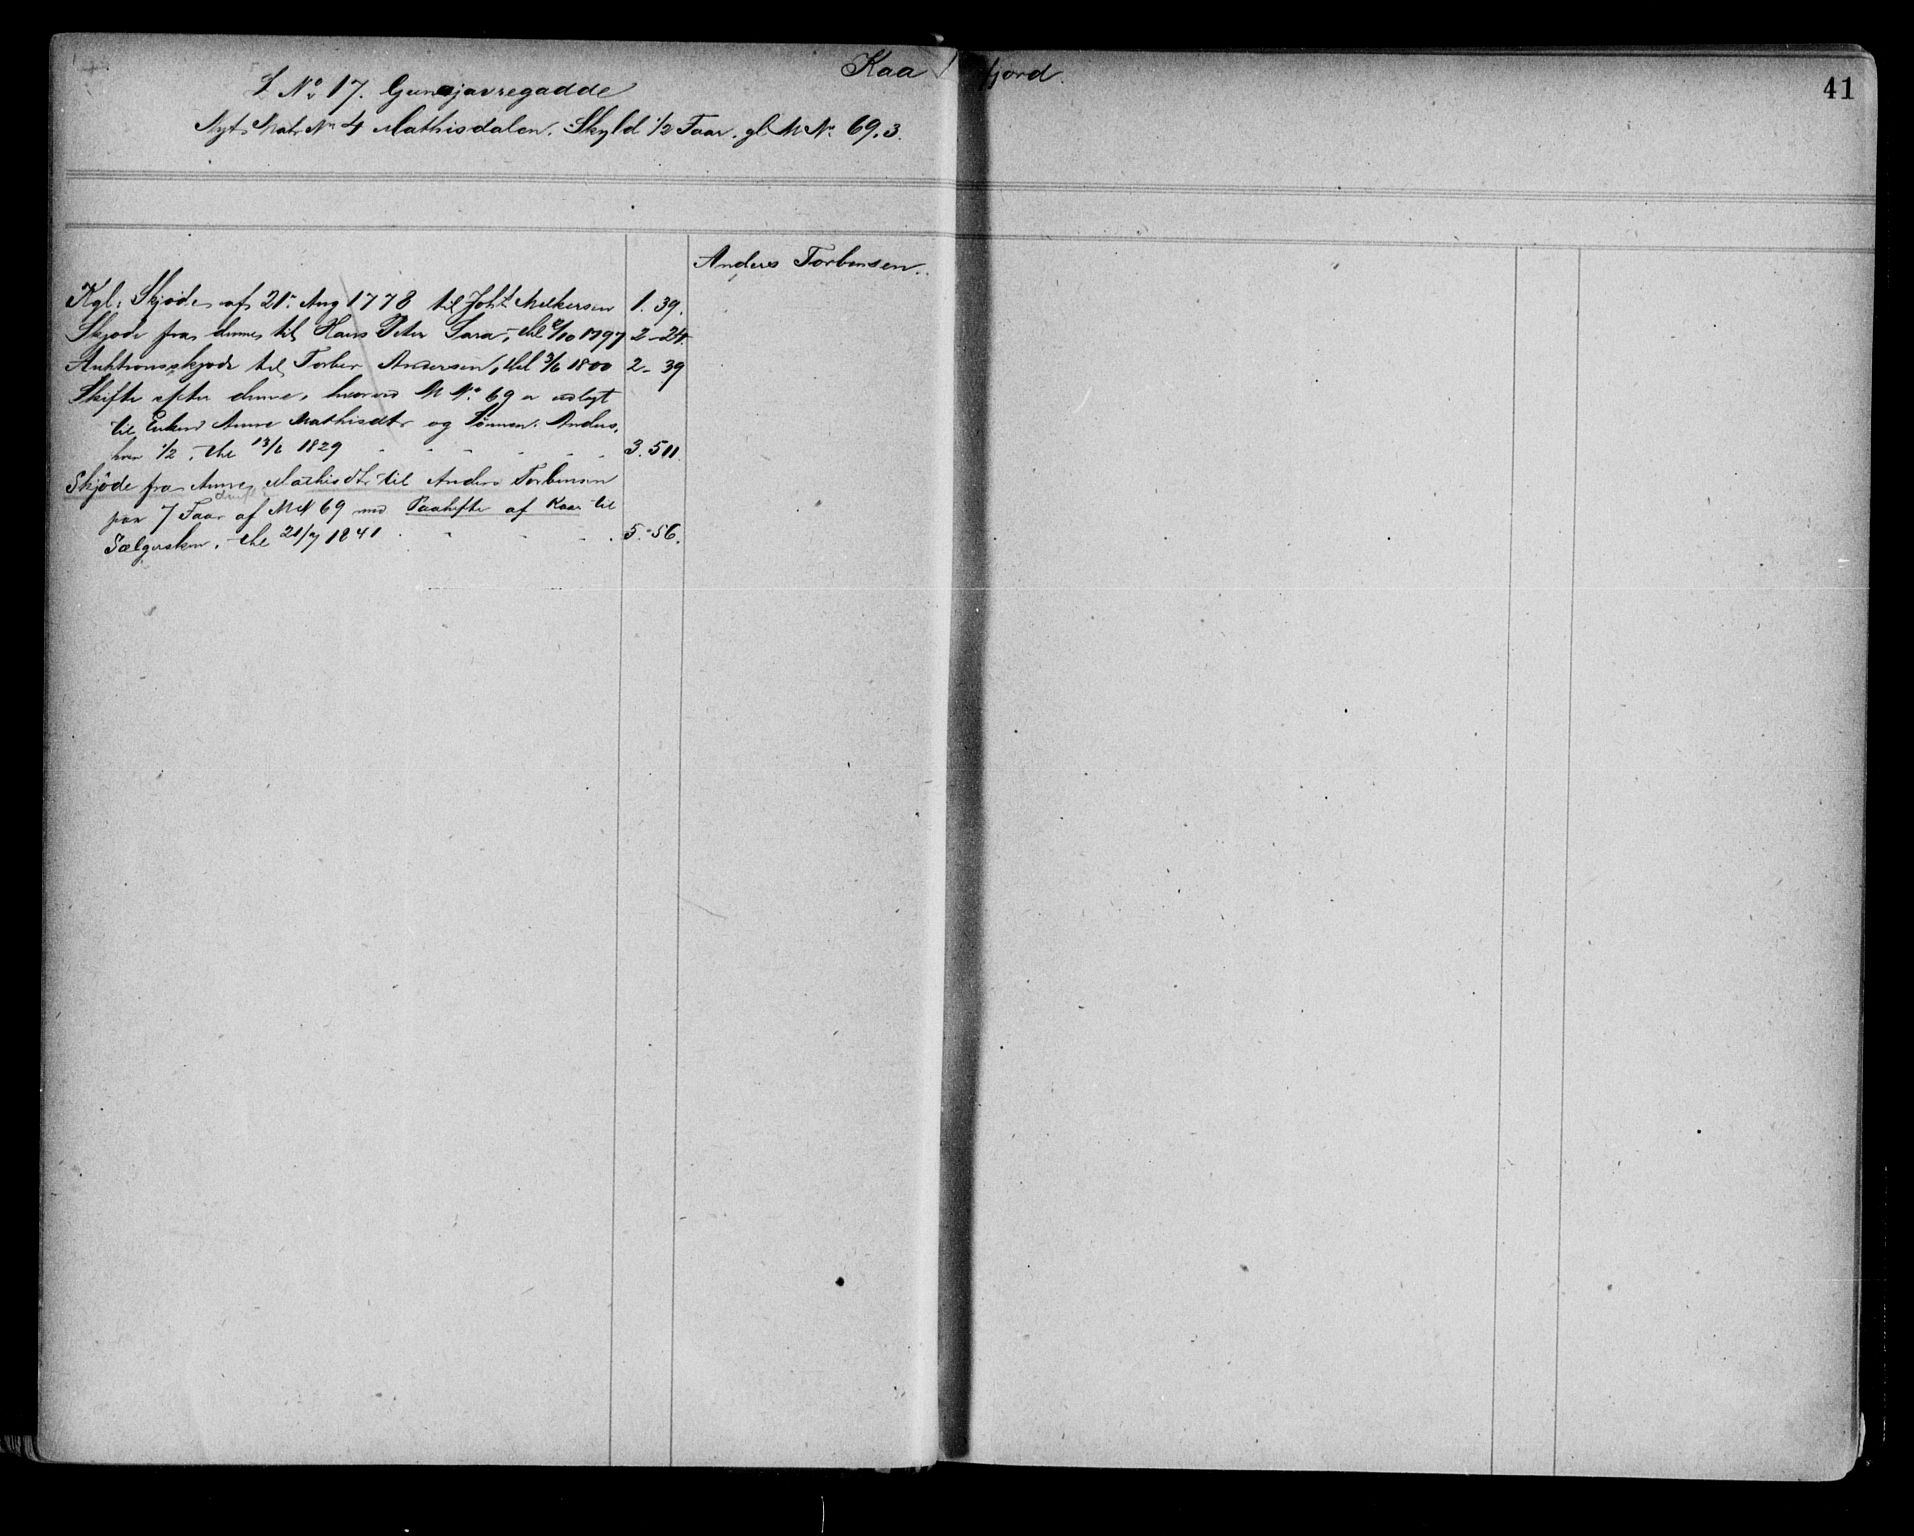 Kaafjord.
41
L No 17. Gunajavregadde
Nyt Matr No 4 Mathisdalen. Skyld 1/2 Faar. gl M No 69.3.
Anders Torbensen.
Kgl. Skjøde af 21 Aug 1778 til Joh Mikkersen 1. 39.
Skjøde fra denne til Hans Peter Sara, thl /10 1797 2-24.
Auktionsskjøde til Torber Andersen, thl 3/6 1800 2-39
Skifte efter denne, hvorved M No 69 er udlagt
til Enken Anne Mathisdtr og Sønnen Anders,
hver 1/2, thl 13/6 1829 3. 511.
Skjøde fra Anne Mathisdtr til Anders Torbensen
paa 7 Faar af M N 69 med Paahefte af Kaar til
Sælgersken, thl 21/7 1841 5. 56.